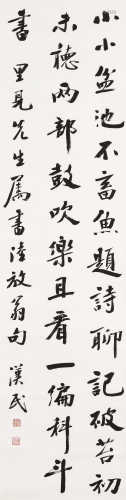 小小盆池不畜魚題詩聊記破苔初
未聽兩部鼓吹樂且看一編科斗
書 里見先生屬書陸放翁句 漢民